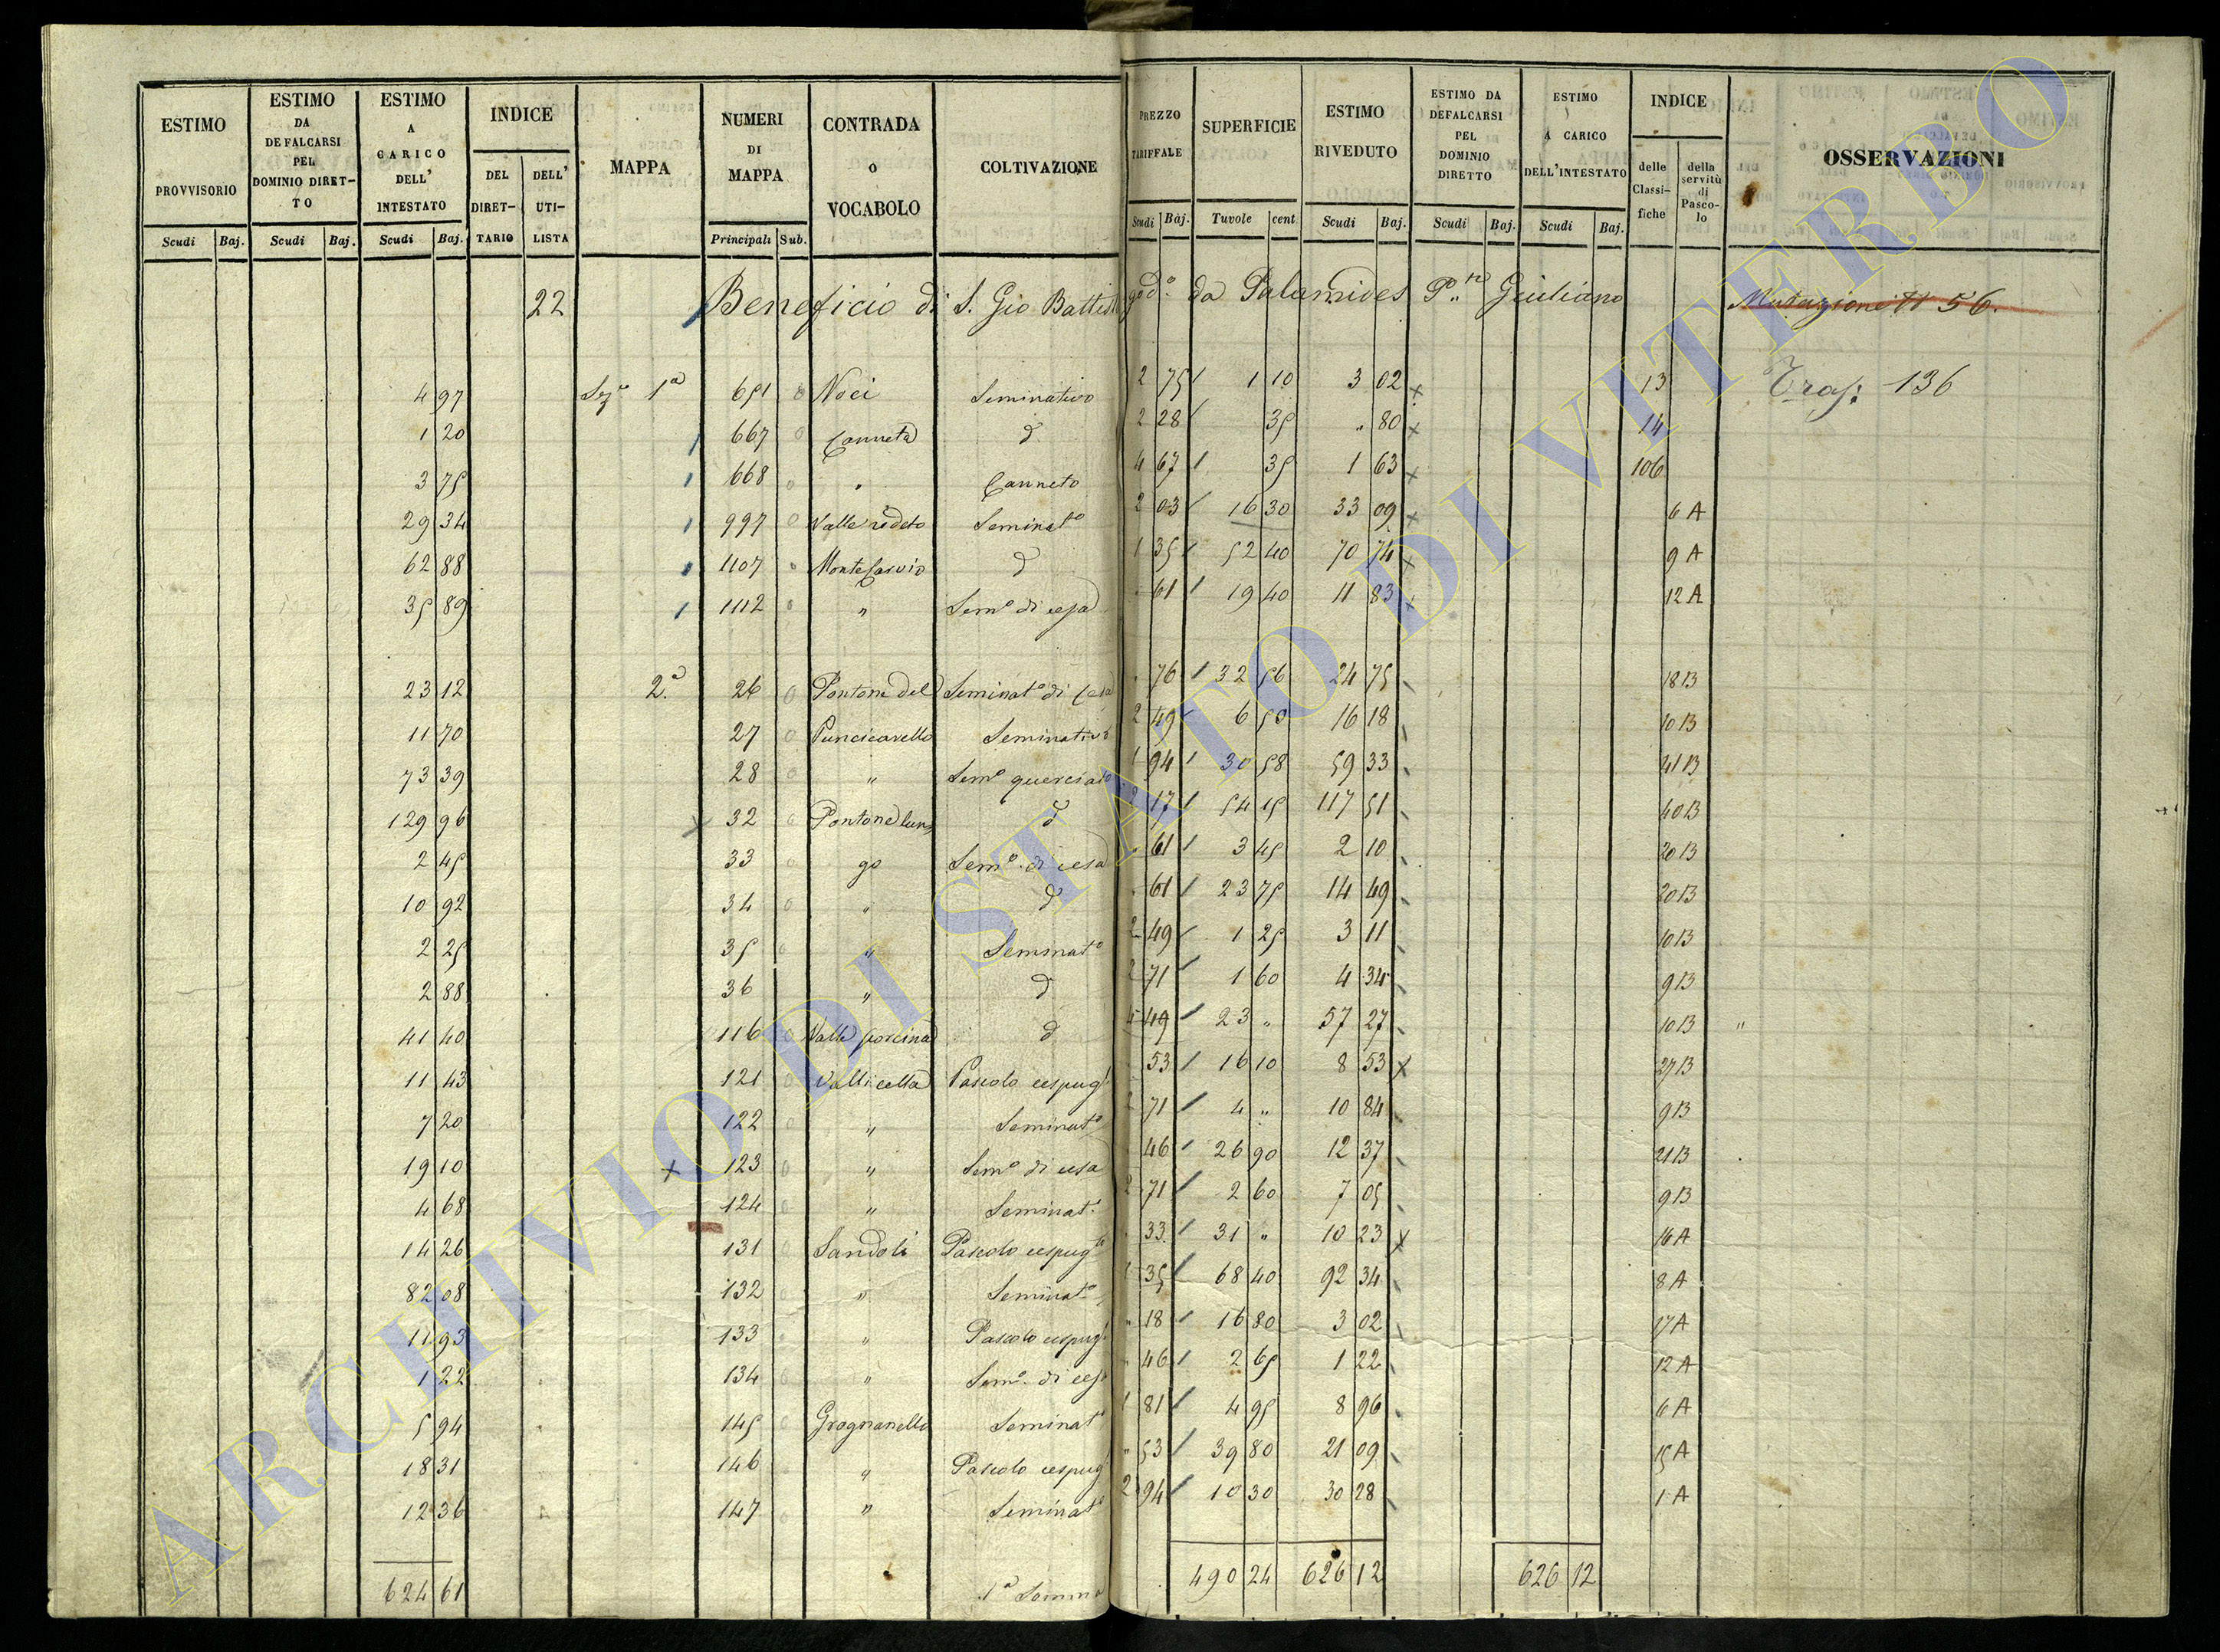 ESTIMO PROVVISORIO | ESTIMO DA DEFALCARSI PEL DOMINIO DIRETTO | ESTIMO A CARICO DELL' INTESTATO | INDICE DEL DIRETTARIO | DELL' UTILISTA | MAPPA | NUMERI DI MAPPA | CONTRADA O VOCABOLO | COLTIVAZIONE | PREZZO TARIFFALE | SUPERFICIE | ESTIMO RIVEDUTO | ESTIMO DA DEFALCARSI PEL DOMINIO DIRETTO | ESTIMO A CARICO DELL'INTESTATO | INDICE delle Classifiche | della servitù di Pascolo | OSSERVAZIONI
Scudi Baj. | Scudi Baj. | Scudi Baj. | Principali Sub. | Scudi Baj. | Tuvole cent | Scudi Baj. | Scudi Baj. | Scudi Baj.
22 Beneficio di S. Gio Battista god.º da Palamides Giuliano Mutazione N 56.
4 97 Sez.e 1ª 651 0 Noci Seminativo 2 75 1 10 3 02 13 Tras: 136
1 20 667 0 Canneta d 2 28 35 " 80 14
3 75 668 0 " Canneto 4 67 35 1 63 106
29 34 997 0 Valle redeto Seminatº 2 03 16 30 33 09 6 A
62 88 1107 0 Monte Calvio d 1 35 52 40 70 74 9 A
35 89 1112 0 " Semº di cesa 61 19 40 11 83 12 A
23 12 2ª 26 0 Pontone del Seminatº di Cesa 76 32 56 24 75 18 B
11 70 27 0 Puncicarello Seminativo 2 49 6 50 16 18 10 B
73 39 28 0 " Semº querciato 1 94 30 58 59 33 41 B
129 96 32 0 Pontone lun= d 2 17 54 15 117 51 40 B
2 45 33 0 go Semº di cesa 61 3 45 2 10 20 B
10 92 34 0 " d 61 23 75 14 49 20 B
2 25 35 0 " Seminatº 2 49 1 25 3 11 10 B
2 88 36 " d 2 71 1 60 4 34 9 B
41 40 116 0 Valle porcina d 49 23 " 57 27 10 B "
11 43 121 0 Vallicella Pascolo cespug. 53 16 10 8 53 27 B
7 20 122 0 " Seminatº 2 71 4 " 10 84 9 B
19 10 123 0 " Semº di cesa 46 26 90 12 37 21 B
4 68 124 " Seminat. 2 71 2 60 7 05 9 B
14 26 131 0 Sandoli Pascolo cespugº 33 31 " 10 23 16 A
82 08 132 " Seminatº 1 35 68 40 92 34 8 A
11 93 133 " Pascolo cespug. 18 16 80 3 02 17 A
1 22 134 " Semº di cesa 46 2 65 1 22 12 A
5 94 145 0 Grognanello Seminatº 1 81 4 95 8 96 6 A
18 31 146 " Pascolo cespug. " 53 39 80 21 09 15 A
12 36 147 " Seminatº 2 94 10 30 30 28 1 A
624 61 1ª Somma 490 24 626 12 626 12
ARCHIVIO DI STATO DI VITERBO